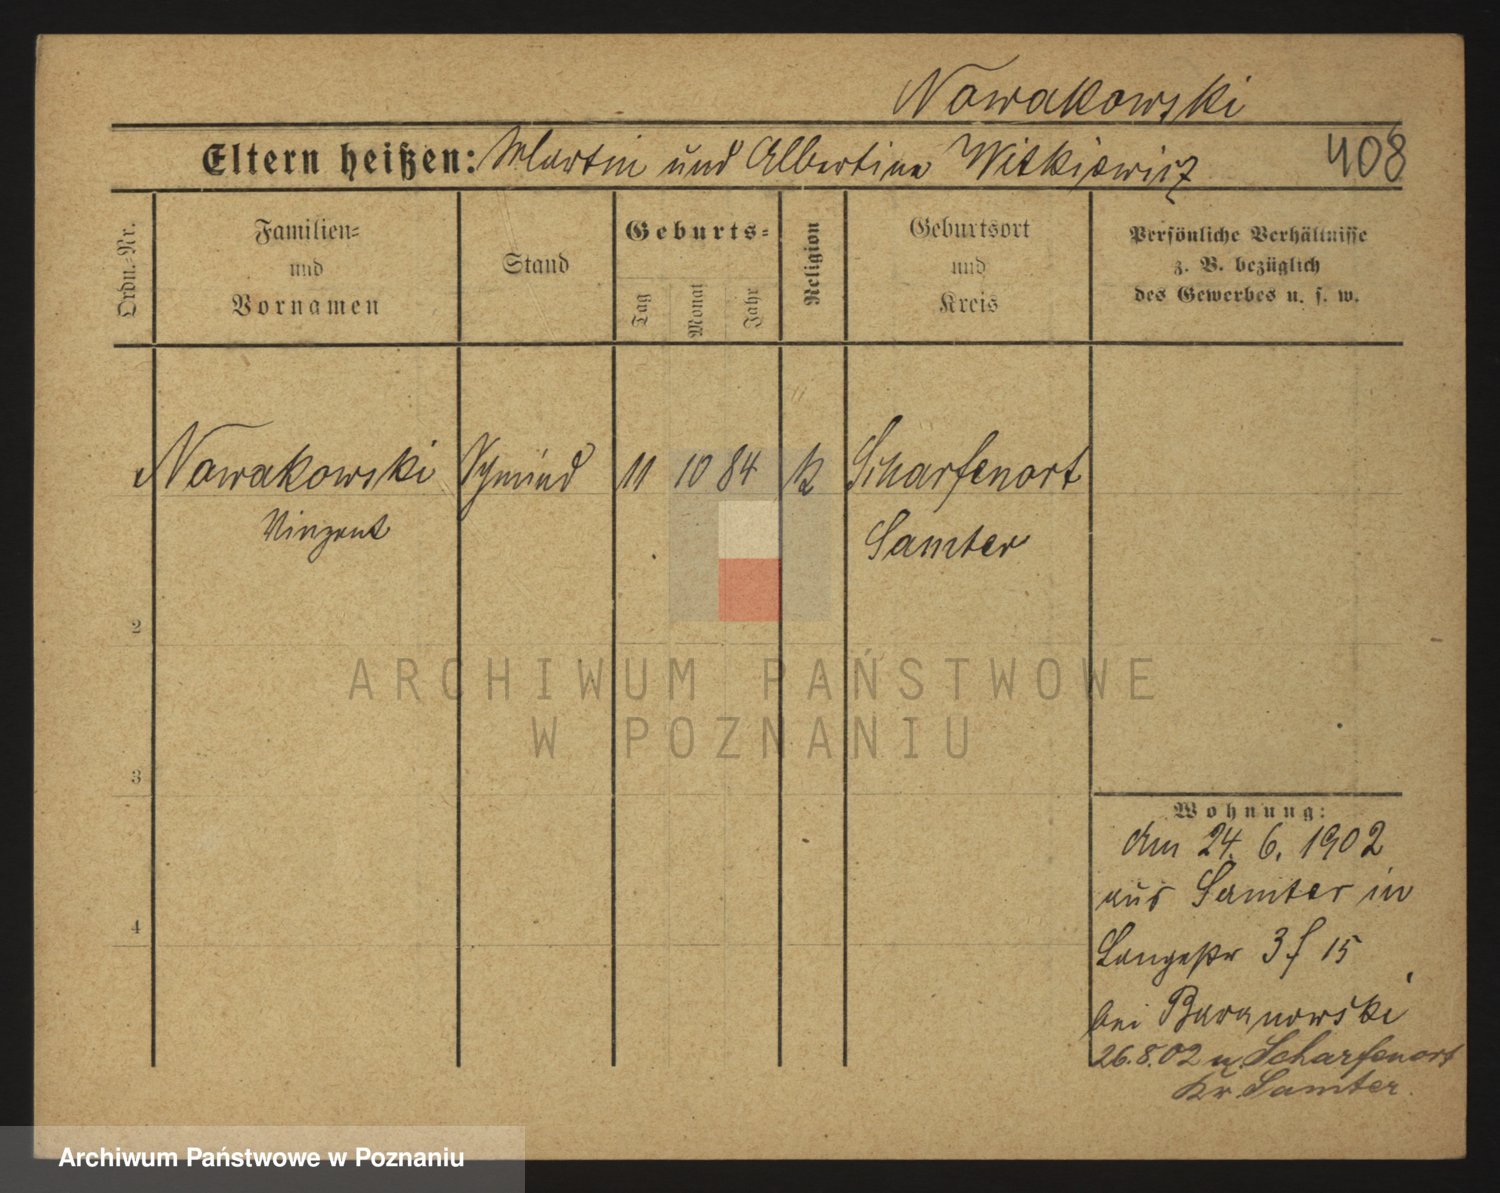 Nowakowski
Eltern heißen: Martin und Albertine Witkiewicz 408
Ordn.-Nr.
Familien-
und
Vornamen
Stand
Geburts-
Tag
Monat
Jahr
Religion
Geburtsort
und
Kreis
Persönliche Verhältnisse
z. B. bezüglich
des Gewerbes u. s. w.
Nowakowski 11 10 84 k Scharfenort
Vinzent Samter
2
3
4
Wohnung:
Am 24. 6. 1902
aus Samter in
Langestr 3 f 15
bei Baranowski
26.8.02 n. Scharfenort
Kr. Samter.
ARCHIWUM PAŃSTWOWE
W POZNANIU
Archiwum Państwowe w Poznaniu